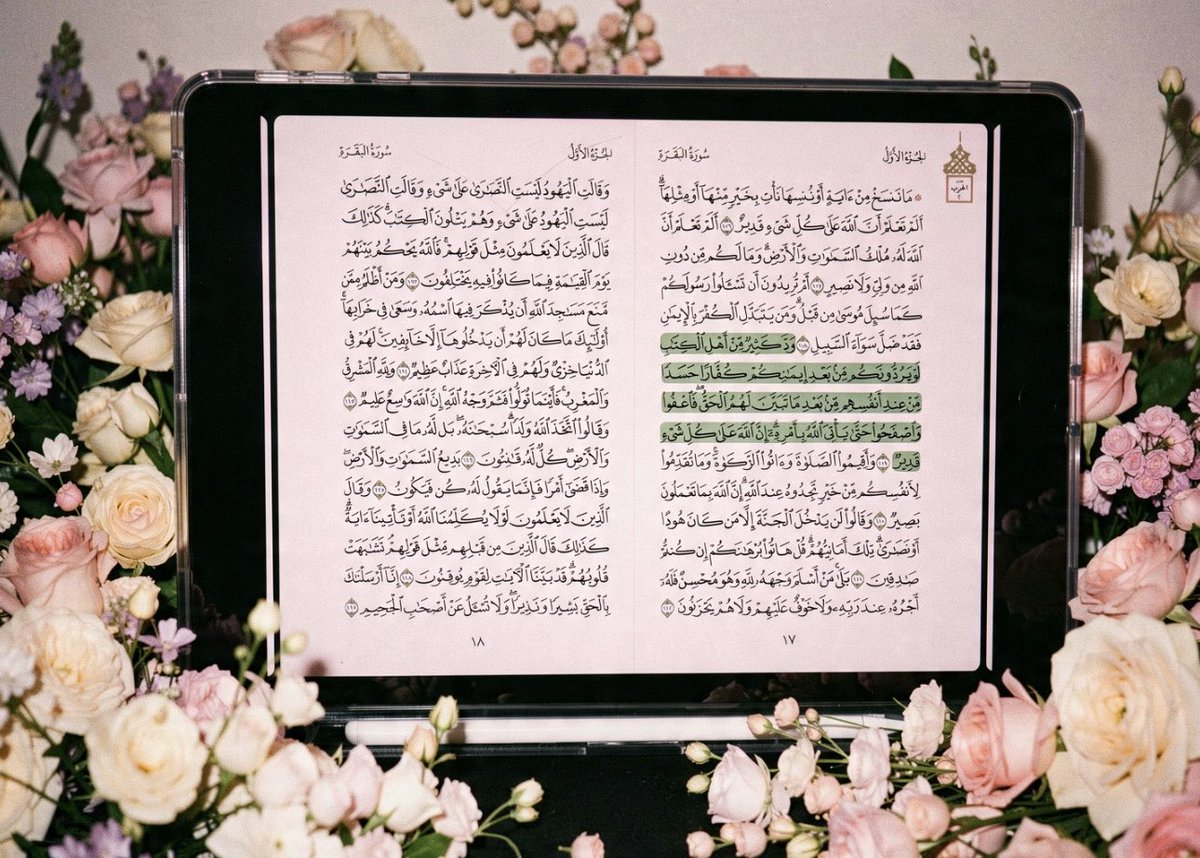 الجُزْءُ الأَوَّلُ
سُورَةُ البَقَرَةِ
الحزب
٢
۞ مَا نَنسَخْ مِنْ ءَايَةٍ أَوْ نُنسِهَا نَأْتِ بِخَيْرٍ مِّنْهَآ أَوْ مِثْلِهَآۗ
أَلَمْ تَعْلَمْ أَنَّ ٱللَّهَ عَلَىٰ كُلِّ شَىْءٍ قَدِيرٌ ١٠٦ أَلَمْ تَعْلَمْ أَنَّ
ٱللَّهَ لَهُۥ مُلْكُ ٱلسَّمَٰوَٰتِ وَٱلْأَرْضِۗ وَمَا لَكُم مِّن دُونِ
ٱللَّهِ مِن وَلِىٍّ وَلَا نَصِيرٍ ١٠٧ أَمْ تُرِيدُونَ أَن تَسْـَٔلُوا۟ رَسُولَكُمْ
كَمَا سُئِلَ مُوسَىٰ مِن قَبْلُۗ وَمَن يَتَبَدَّلِ ٱلْكُفْرَ بِٱلْإِيمَٰنِ
فَقَدْ ضَلَّ سَوَآءَ ٱلسَّبِيلِ ١٠٨ وَدَّ كَثِيرٌ مِّنْ أَهْلِ ٱلْكِتَٰبِ
لَوْ يَرُدُّونَكُم مِّنۢ بَعْدِ إِيمَٰنِكُمْ كُفَّارًا حَسَدًا
مِّنْ عِندِ أَنفُسِهِم مِّنۢ بَعْدِ مَا تَبَيَّنَ لَهُمُ ٱلْحَقُّۖ فَٱعْفُوا۟
وَٱصْفَحُوا۟ حَتَّىٰ يَأْتِىَ ٱللَّهُ بِأَمْرِهِۦٓۗ إِنَّ ٱللَّهَ عَلَىٰ كُلِّ شَىْءٍ
قَدِيرٌ ١٠٩ وَأَقِيمُوا۟ ٱلصَّلَوٰةَ وَءَاتُوا۟ ٱلزَّكَوٰةَۚ وَمَا تُقَدِّمُوا۟
لِأَنفُسِكُم مِّنْ خَيْرٍ تَجِدُوهُ عِندَ ٱللَّهِۗ إِنَّ ٱللَّهَ بِمَا تَعْمَلُونَ
بَصِيرٌ ١١٠ وَقَالُوا۟ لَن يَدْخُلَ ٱلْجَنَّةَ إِلَّا مَن كَانَ هُودًا
أَوْ نَصَٰرَىٰۗ تِلْكَ أَمَانِيُّهُمْۗ قُلْ هَاتُوا۟ بُرْهَٰنَكُمْ إِن كُنتُمْ
صَٰدِقِينَ ١١١ بَلَىٰ مَنْ أَسْلَمَ وَجْهَهُۥ لِلَّهِ وَهُوَ مُحْسِنٌ فَلَهُۥٓ
أَجْرُهُۥ عِندَ رَبِّهِۦ وَلَا خَوْفٌ عَلَيْهِمْ وَلَا هُمْ يَحْزَنُونَ ١١٢
١٧
الجُزْءُ الأَوَّلُ
سُورَةُ البَقَرَةِ
وَقَالَتِ ٱلْيَهُودُ لَيْسَتِ ٱلنَّصَٰرَىٰ عَلَىٰ شَىْءٍ وَقَالَتِ ٱلنَّصَٰرَىٰ
لَيْسَتِ ٱلْيَهُودُ عَلَىٰ شَىْءٍ وَهُمْ يَتْلُونَ ٱلْكِتَٰبَۗ كَذَٰلِكَ
قَالَ ٱلَّذِينَ لَا يَعْلَمُونَ مِثْلَ قَوْلِهِمْۚ فَٱللَّهُ يَحْكُمُ بَيْنَهُمْ
يَوْمَ ٱلْقِيَٰمَةِ فِيمَا كَانُوا۟ فِيهِ يَخْتَلِفُونَ ١١٣ وَمَنْ أَظْلَمُ مِمَّن
مَّنَعَ مَسَٰجِدَ ٱللَّهِ أَن يُذْكَرَ فِيهَا ٱسْمُهُۥ وَسَعَىٰ فِى خَرَابِهَآۚ
أُو۟لَٰٓئِكَ مَا كَانَ لَهُمْ أَن يَدْخُلُوهَآ إِلَّا خَآئِفِينَۚ لَهُمْ فِى
ٱلدُّنْيَا خِزْىٌ وَلَهُمْ فِى ٱلْءَاخِرَةِ عَذَابٌ عَظِيمٌ ١١٤ وَلِلَّهِ ٱلْمَشْرِقُ
وَٱلْمَغْرِبُۚ فَأَيْنَمَا تُوَلُّوا۟ فَثَمَّ وَجْهُ ٱللَّهِۚ إِنَّ ٱللَّهَ وَٰسِعٌ عَلِيمٌ ١١٥
وَقَالُوا۟ ٱتَّخَذَ ٱللَّهُ وَلَدًاۗ سُبْحَٰنَهُۥۖ بَل لَّهُۥ مَا فِى ٱلسَّمَٰوَٰتِ
وَٱلْأَرْضِۖ كُلٌّ لَّهُۥ قَٰنِتُونَ ١١٦ بَدِيعُ ٱلسَّمَٰوَٰتِ وَٱلْأَرْضِۖ
وَإِذَا قَضَىٰٓ أَمْرًا فَإِنَّمَا يَقُولُ لَهُۥ كُن فَيَكُونُ ١١٧ وَقَالَ
ٱلَّذِينَ لَا يَعْلَمُونَ لَوْلَا يُكَلِّمُنَا ٱللَّهُ أَوْ تَأْتِينَآ ءَايَةٌۗ
كَذَٰلِكَ قَالَ ٱلَّذِينَ مِن قَبْلِهِم مِّثْلَ قَوْلِهِمْۘ تَشَٰبَهَتْ
قُلُوبُهُمْۗ قَدْ بَيَّنَّا ٱلْءَايَٰتِ لِقَوْمٍ يُوقِنُونَ ١١٨ إِنَّآ أَرْسَلْنَٰكَ
بِٱلْحَقِّ بَشِيرًا وَنَذِيرًاۖ وَلَا تُسْـَٔلُ عَنْ أَصْحَٰبِ ٱلْجَحِيمِ ١١٩
١٨